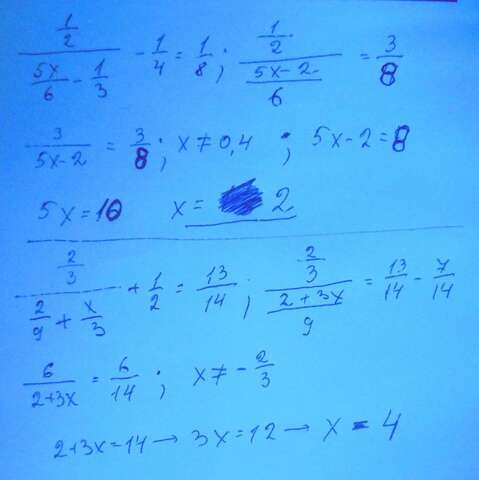 (1/2)/(5x/6 - 1/3) - 1/4 = 1/8 ; (1/2)/((5x-2)/6) = 3/8
3/(5x-2) = 3/8 ; x ≠ 0,4 ; 5x-2 = 8
5x = 10 x = 2
(2/3)/(2/9 + x/3) + 1/2 = 13/14 ; (2/3)/((2+3x)/9) = 13/14 - 7/14
6/(2+3x) = 6/14 ; x ≠ -2/3
2+3x=14 → 3x=12 → x = 4